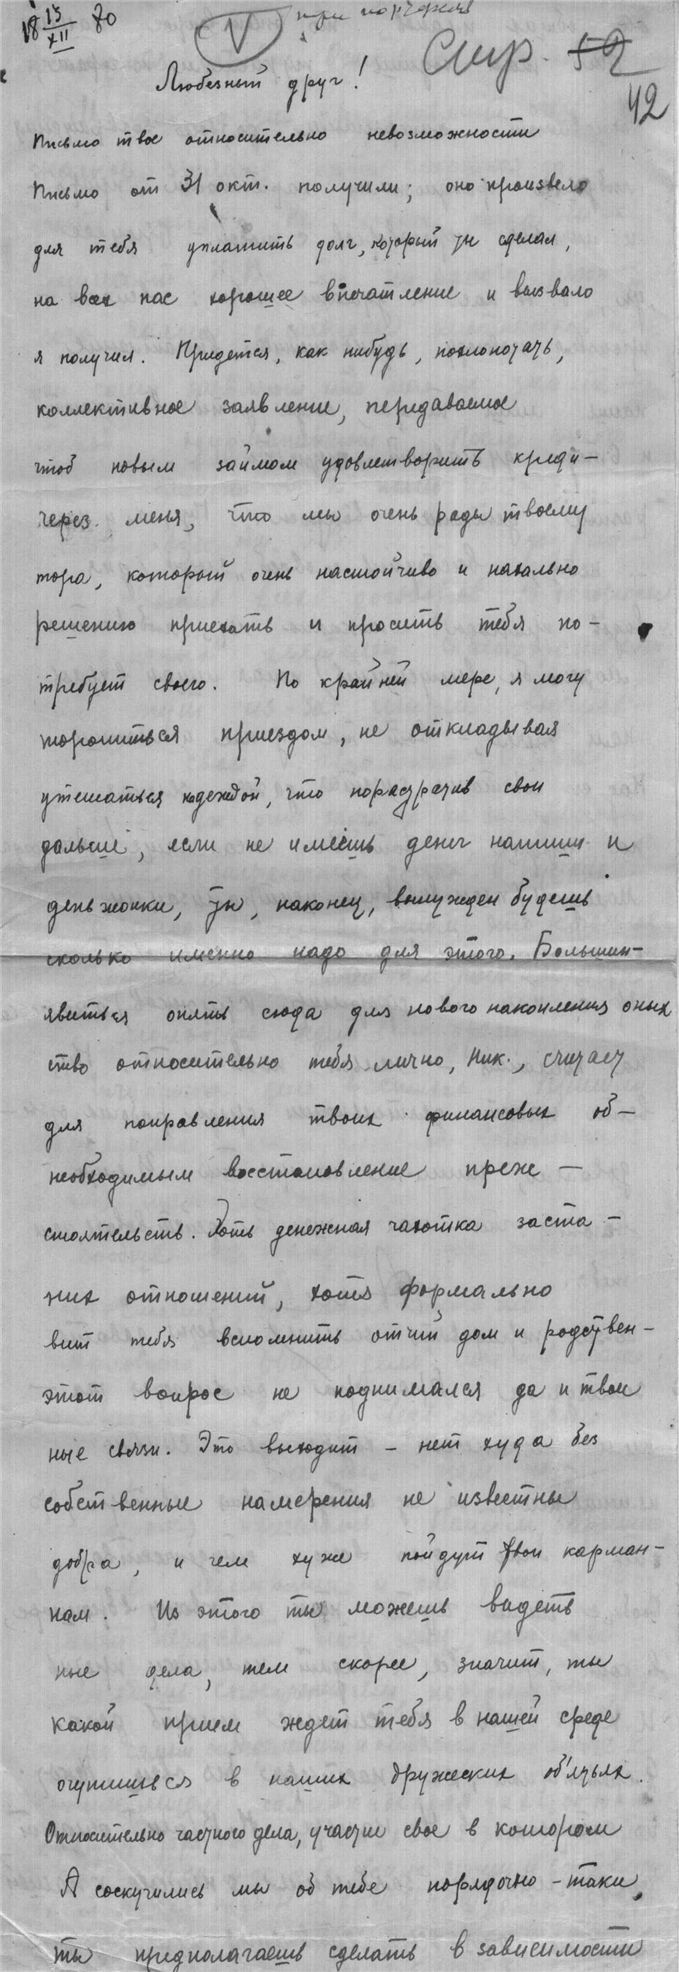 18 15/XII 80
V при
Стр. 52
42
Любезный друг!
Письмо твое относительно невозможности
Письмо от 31 окт. получили; оно произвело
для тебя уплатить долг, который ты сделал,
на всех нас хорошее впечатление и вызвало
я получил. Придется, как нибудь, похлопотать,
коллективное заявление, передаваемое
чтоб новым займом удовлетворить креди-
через меня, что мы очень рады твоему
тора, который очень настойчиво и нахально
решению приехать и просить тебя по-
требует своего. По крайней мере, я могу
торопиться приездом, не откладывая
утешаться надеждой, что порастратив свои
дальше, если не имеешь денег напиши и
деньжонки, ты, наконец, вынужден будешь
сколько именно надо для этого. Большин-
явиться опять сюда для нового накопления оных
ство относительно тебя лично, Ник., считает
для поправления твоих финансовых об-
необходимым восстановление преж-
стоятельств. Хоть денежная чахотка заста-
них отношений, хотя формально
вит тебя вспомнить отчий дом и родствен-
этот вопрос не поднимался да и твои
ные связи. Это выходит - нет худа без
собственные намерения не известны
добра, и чем хуже пойдут твои карман-
нам. Из этого ты можешь видеть
ные дела, тем скорее, значит, ты
какой прием ждет тебя в нашей среде
очутишься в наших дружеских об'ятьях.
Относительно частного дела, участие свое в котором
А соскучились мы об тебе порядочно-таки,
ты предполагаешь сделать в зависимости